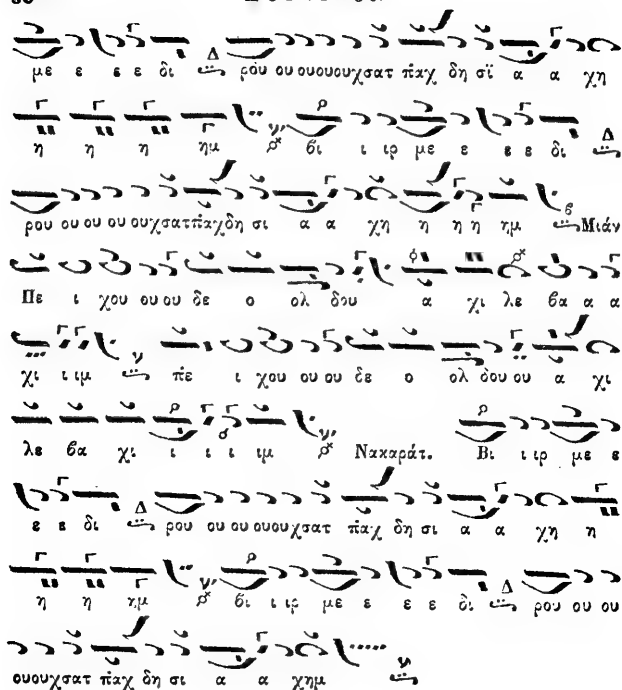 με ε ε ε δι Δ ρου ου ουουουχσατ παχ δη σϊ α α χη
η η η ημ βι ι ιρ με ε ε ε δι Δ
ρου ου ου ου ουχσατπαχδη σι α α χη η η η ημ Μιάν
Πε ι χου ου ου δε ο ολ δου α χι λε βα α α
χι ι ιμ πε ι χου ου ου δε ο ολ δου ου α χι
λε βα χι ι ι ι ιμ Νακαράτ. Βι ι ιρ με ε
ε ε δι Δ ρου ου ου ουουχσατ παχ δη σι α α χη η
η η ημ βι ι ιρ με ε ε ε δι Δ ρου ου ου
ουουχσατ παχ δη σι α α χημ